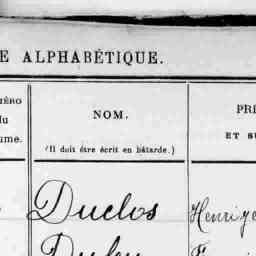 E ALPHABÉTIQUE.
ÉRO
du
ume.
NOM.
(Il doit être écrit en bâtarde.)
PRÉ
ET SU
Duclos